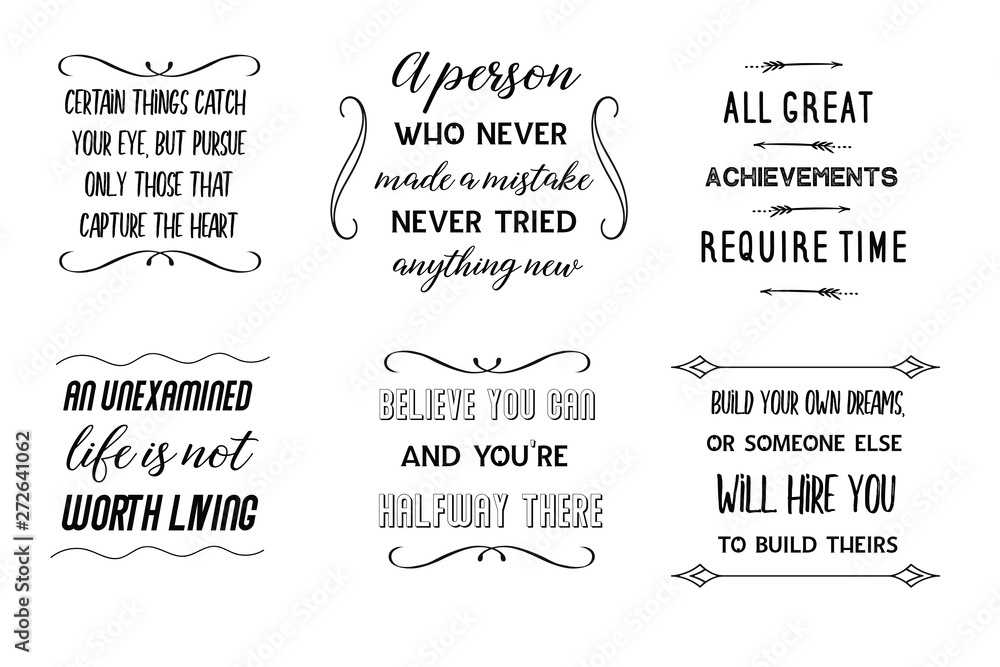 CERTAIN THINGS CATCH
YOUR EYE, BUT PURSUE
ONLY THOSE THAT
CAPTURE THE HEART
A person
WHO NEVER
made a mistake
NEVER TRIED
anything new
ALL GREAT
ACHIEVEMENTS
REQUIRE TIME
AN UNEXAMINED
life is not
WORTH LIVING
BELIEVE YOU CAN
AND YOU'RE
HALFWAY THERE
BUILD YOUR OWN DREAMS,
OR SOMEONE ELSE
WILL HIRE YOU
TO BUILD THEIRS
Adobe Stock | #272641062